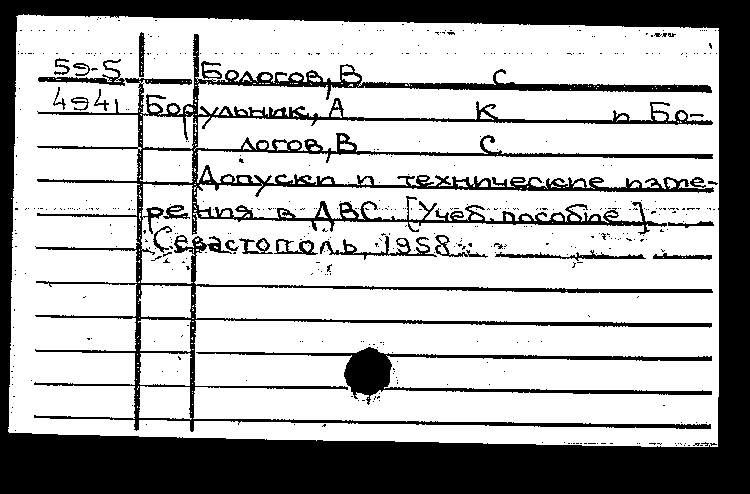 59-5 Бологов, В С
4941 Борульник, А К и Бо-
логов, В С
Допуски и технические изме-
рения в ДВС. [Учеб. пособие]
Севастополь, 1958.